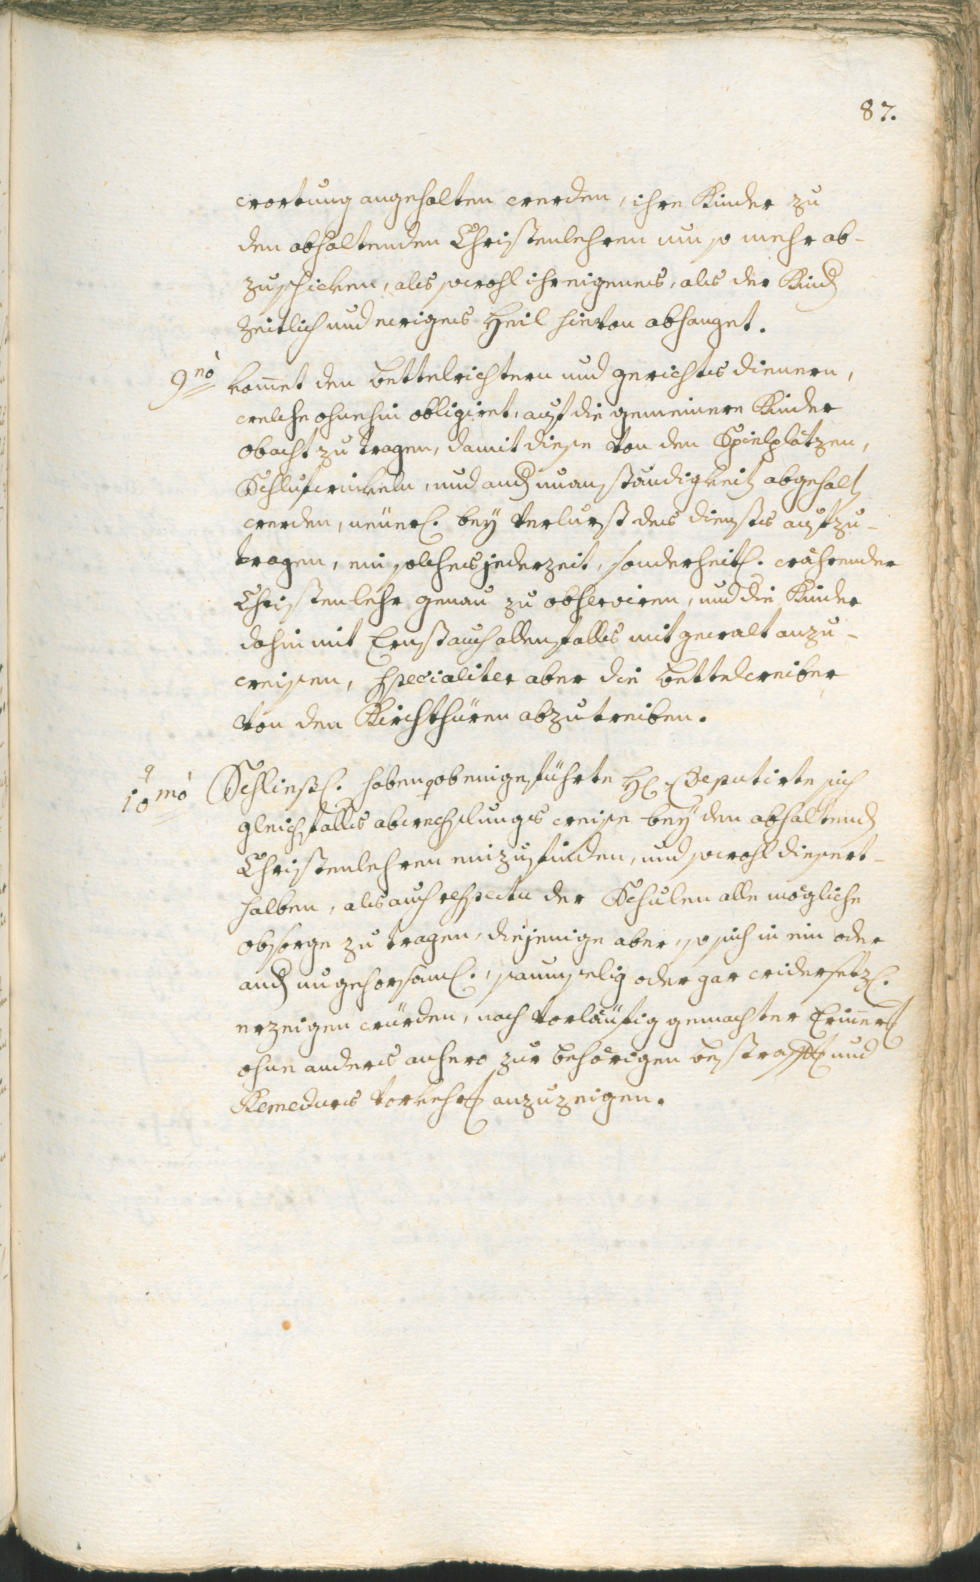 87.
wortung angehalten werden, ihre Kinder zu
den abhaltenden Christenlehren um so mehr ab-
zuschicken, als sowohl ihr eigenes, als der Kind
Zeitlich und ewiges Heil hievon abhanget.
9nò kommet den Bettelrichtern und gerichts dienern,
welche ohnehin obligiret, auf die gemeinere Kinder
obacht zu tragen, damit diese von den Spielplätzen,
Schlufwinkeln, und and unanständigkeit abgehalt
werden, neüerl. bey verlurst des diensts aufzu-
tragen, ein solches jederzeit, sonderheitl. während der
Christenlehr genau zu observiren, und die Kinder
dahin mit Ernst auch allenfalls mit gewalt anzu-
weisen, specialiter aber die bettelweiber
von den Kirchthüren abzutreiben.
10mò Schliessl. haben obeingeführte H. Deputirte sich
gleichfalls abwechslungs weise bey den abhaltend
Christenlehren einzufinden, und sowohl diesert-
halben, als auch respectu der Schulen alle mögliche
obsorge zu tragen, diejenige aber, so sich in ein oder
and ungehorsaml., saumselig oder gar widersetzl.
erzeigen würden, nach vorläufig gemachter Erinner
ohne anders anhero zur behörigen bestraf und
Remedurs vorkehr anzuzeigen.